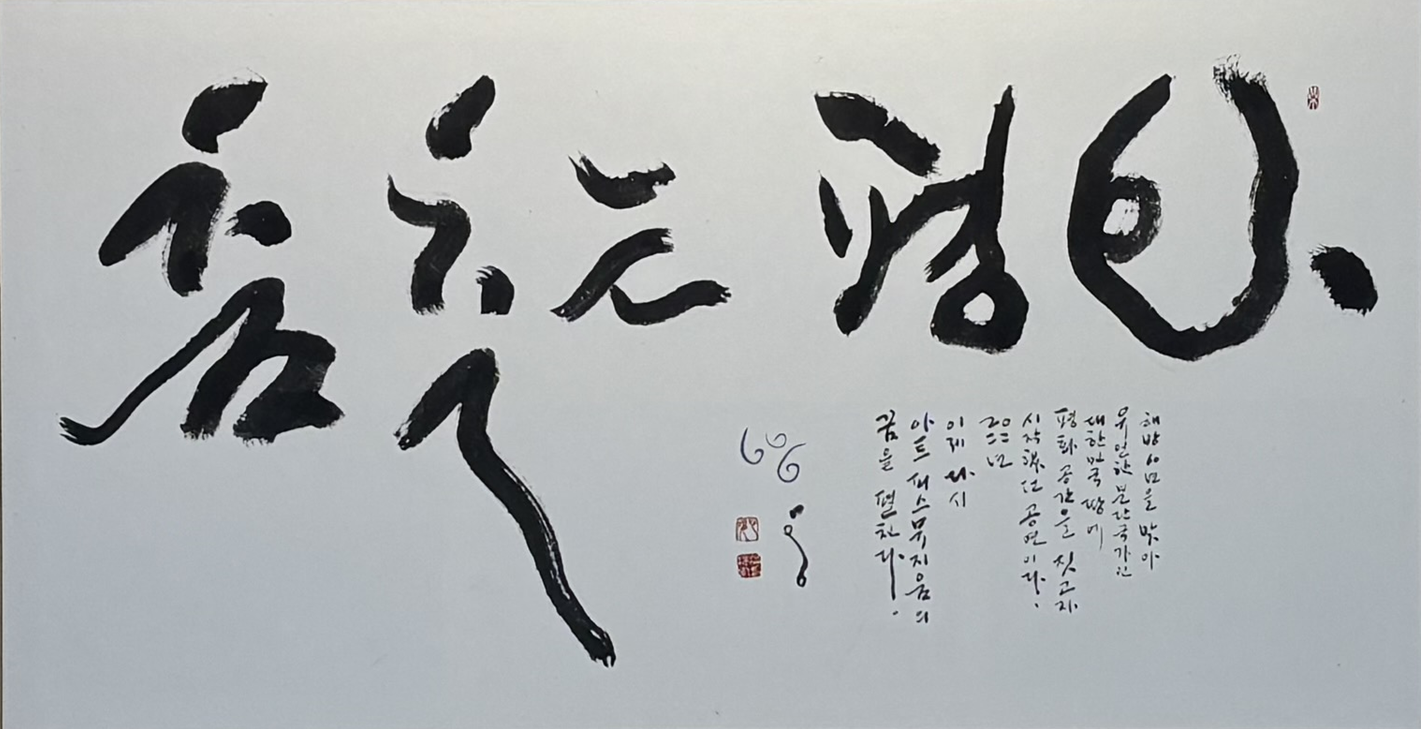 춤추는 평화
해방 60년을 맞아
유일한 분단국가인
대한민국 땅에
평화 공간을 짓고자
시작했던 공연이다.
2022년
이제 다시
아트 피스뮤지움의
꿈을 펼친다.